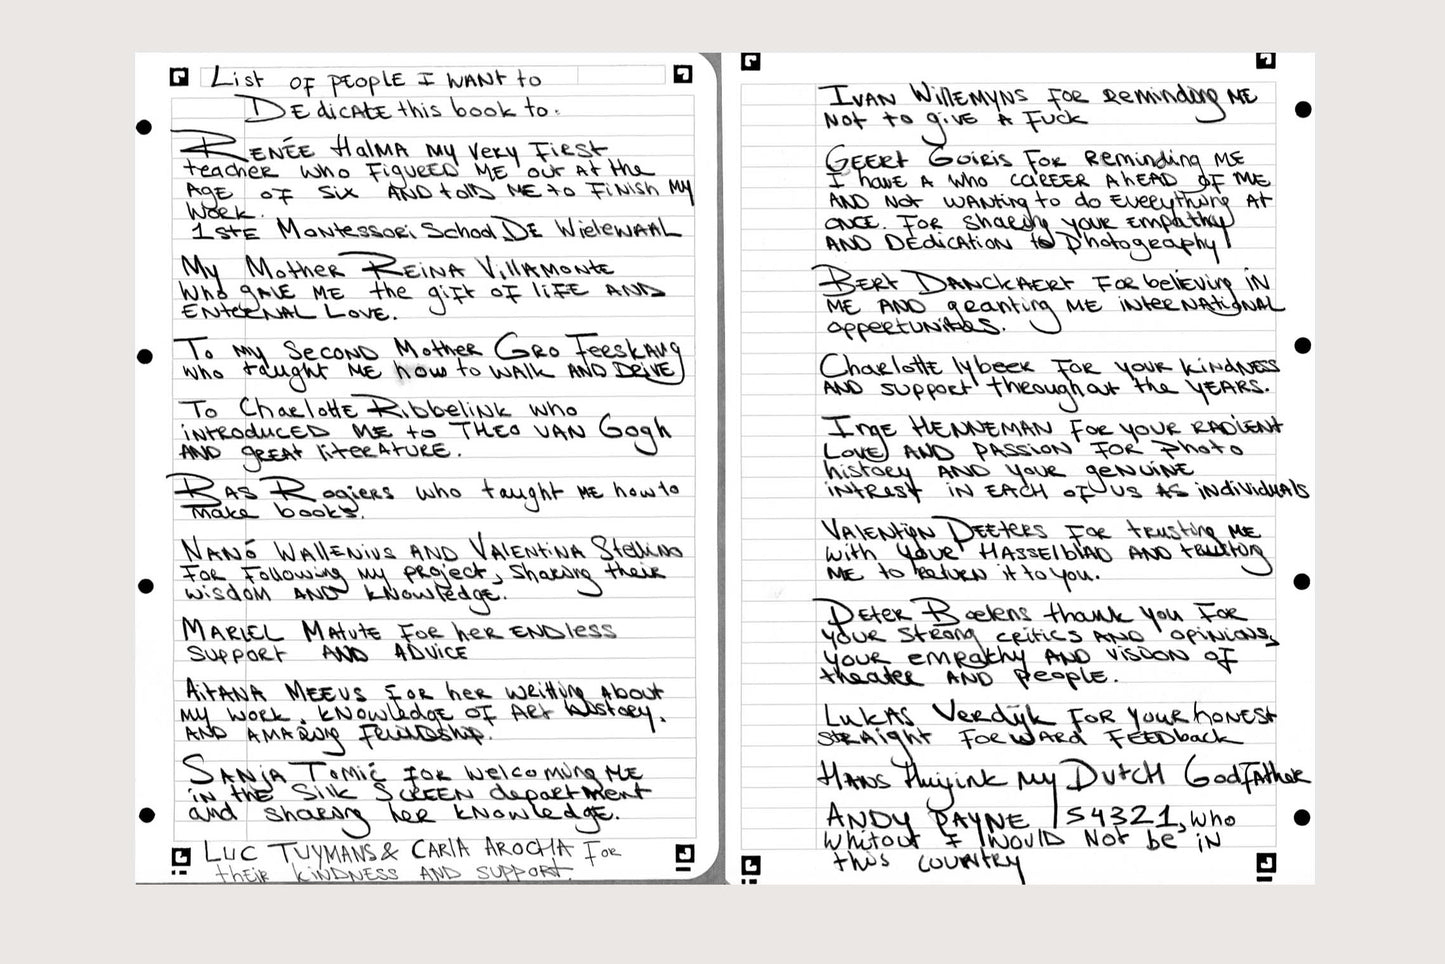 List of people I want to
Dedicate this book to:
Renée Halma my very first
teacher who figured me out at the
age of six and told me to finish my
work.
1ste Montessori School De Wielewaal
My Mother Reina Villamonte
who gave me the gift of life and
enternal love.
To my second Mother Gro Feeskaug
who taught me how to walk and drive
To Charlotte Ribbelink who
introduced me to Theo van Gogh
and great literature.
Bas Rogiers who taught me how to
make books.
Nanó Wallenius and Valentina Stellino
for following my project, sharing their
wisdom and knowledge.
Mariel Matute for her endless
support and advice
Aitana Meeus for her writting about
my work, knowledge of art history.
and amazing friendship.
Sanja Tomić for welcoming me
in the silk screen department
and sharing her knowledge.
Luc Tuymans & Carla Arocha for
their kindness and support.
Ivan Willemyns for reminding me
not to give a fuck
Geert Goiris for reminding me
I have a who career ahead of me
and not wanting to do everything at
once. For sharing your empathy
and dedication to photography
Bert Danckaert for believing in
me and granting me international
oppertunities.
Charlotte lybeer for your kindness
and support throughout the years.
Inge Henneman for your radient
love and passion for photo
history and your genuine
intrest in each of us as individuals
Valentijn Peeters for trusting me
with your Hasselblad and trusting
me to return it to you.
Peter Boelens thank you for
your strong critics and opinions,
your empathy and vision of
theater and people.
Lukas Verdijk for your honest
straight forward feedback
Hans Huijink my Dutch Godfather
Andy Payne 54321, who
whitout I would not be in
this country